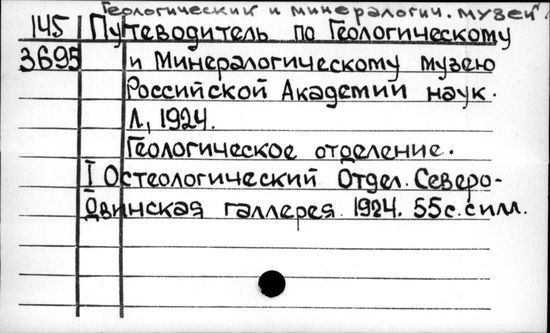 Геологический и минералогич. музей.
145 Путеводитель по Геологическому
3695 и Минералогическому музею
Российской Академии наук.
Л., 1924.
Геологическое отделение.
I Остеологический Отдел. Северо-
Двинская галлерея. 1924. 55 с. с илл.